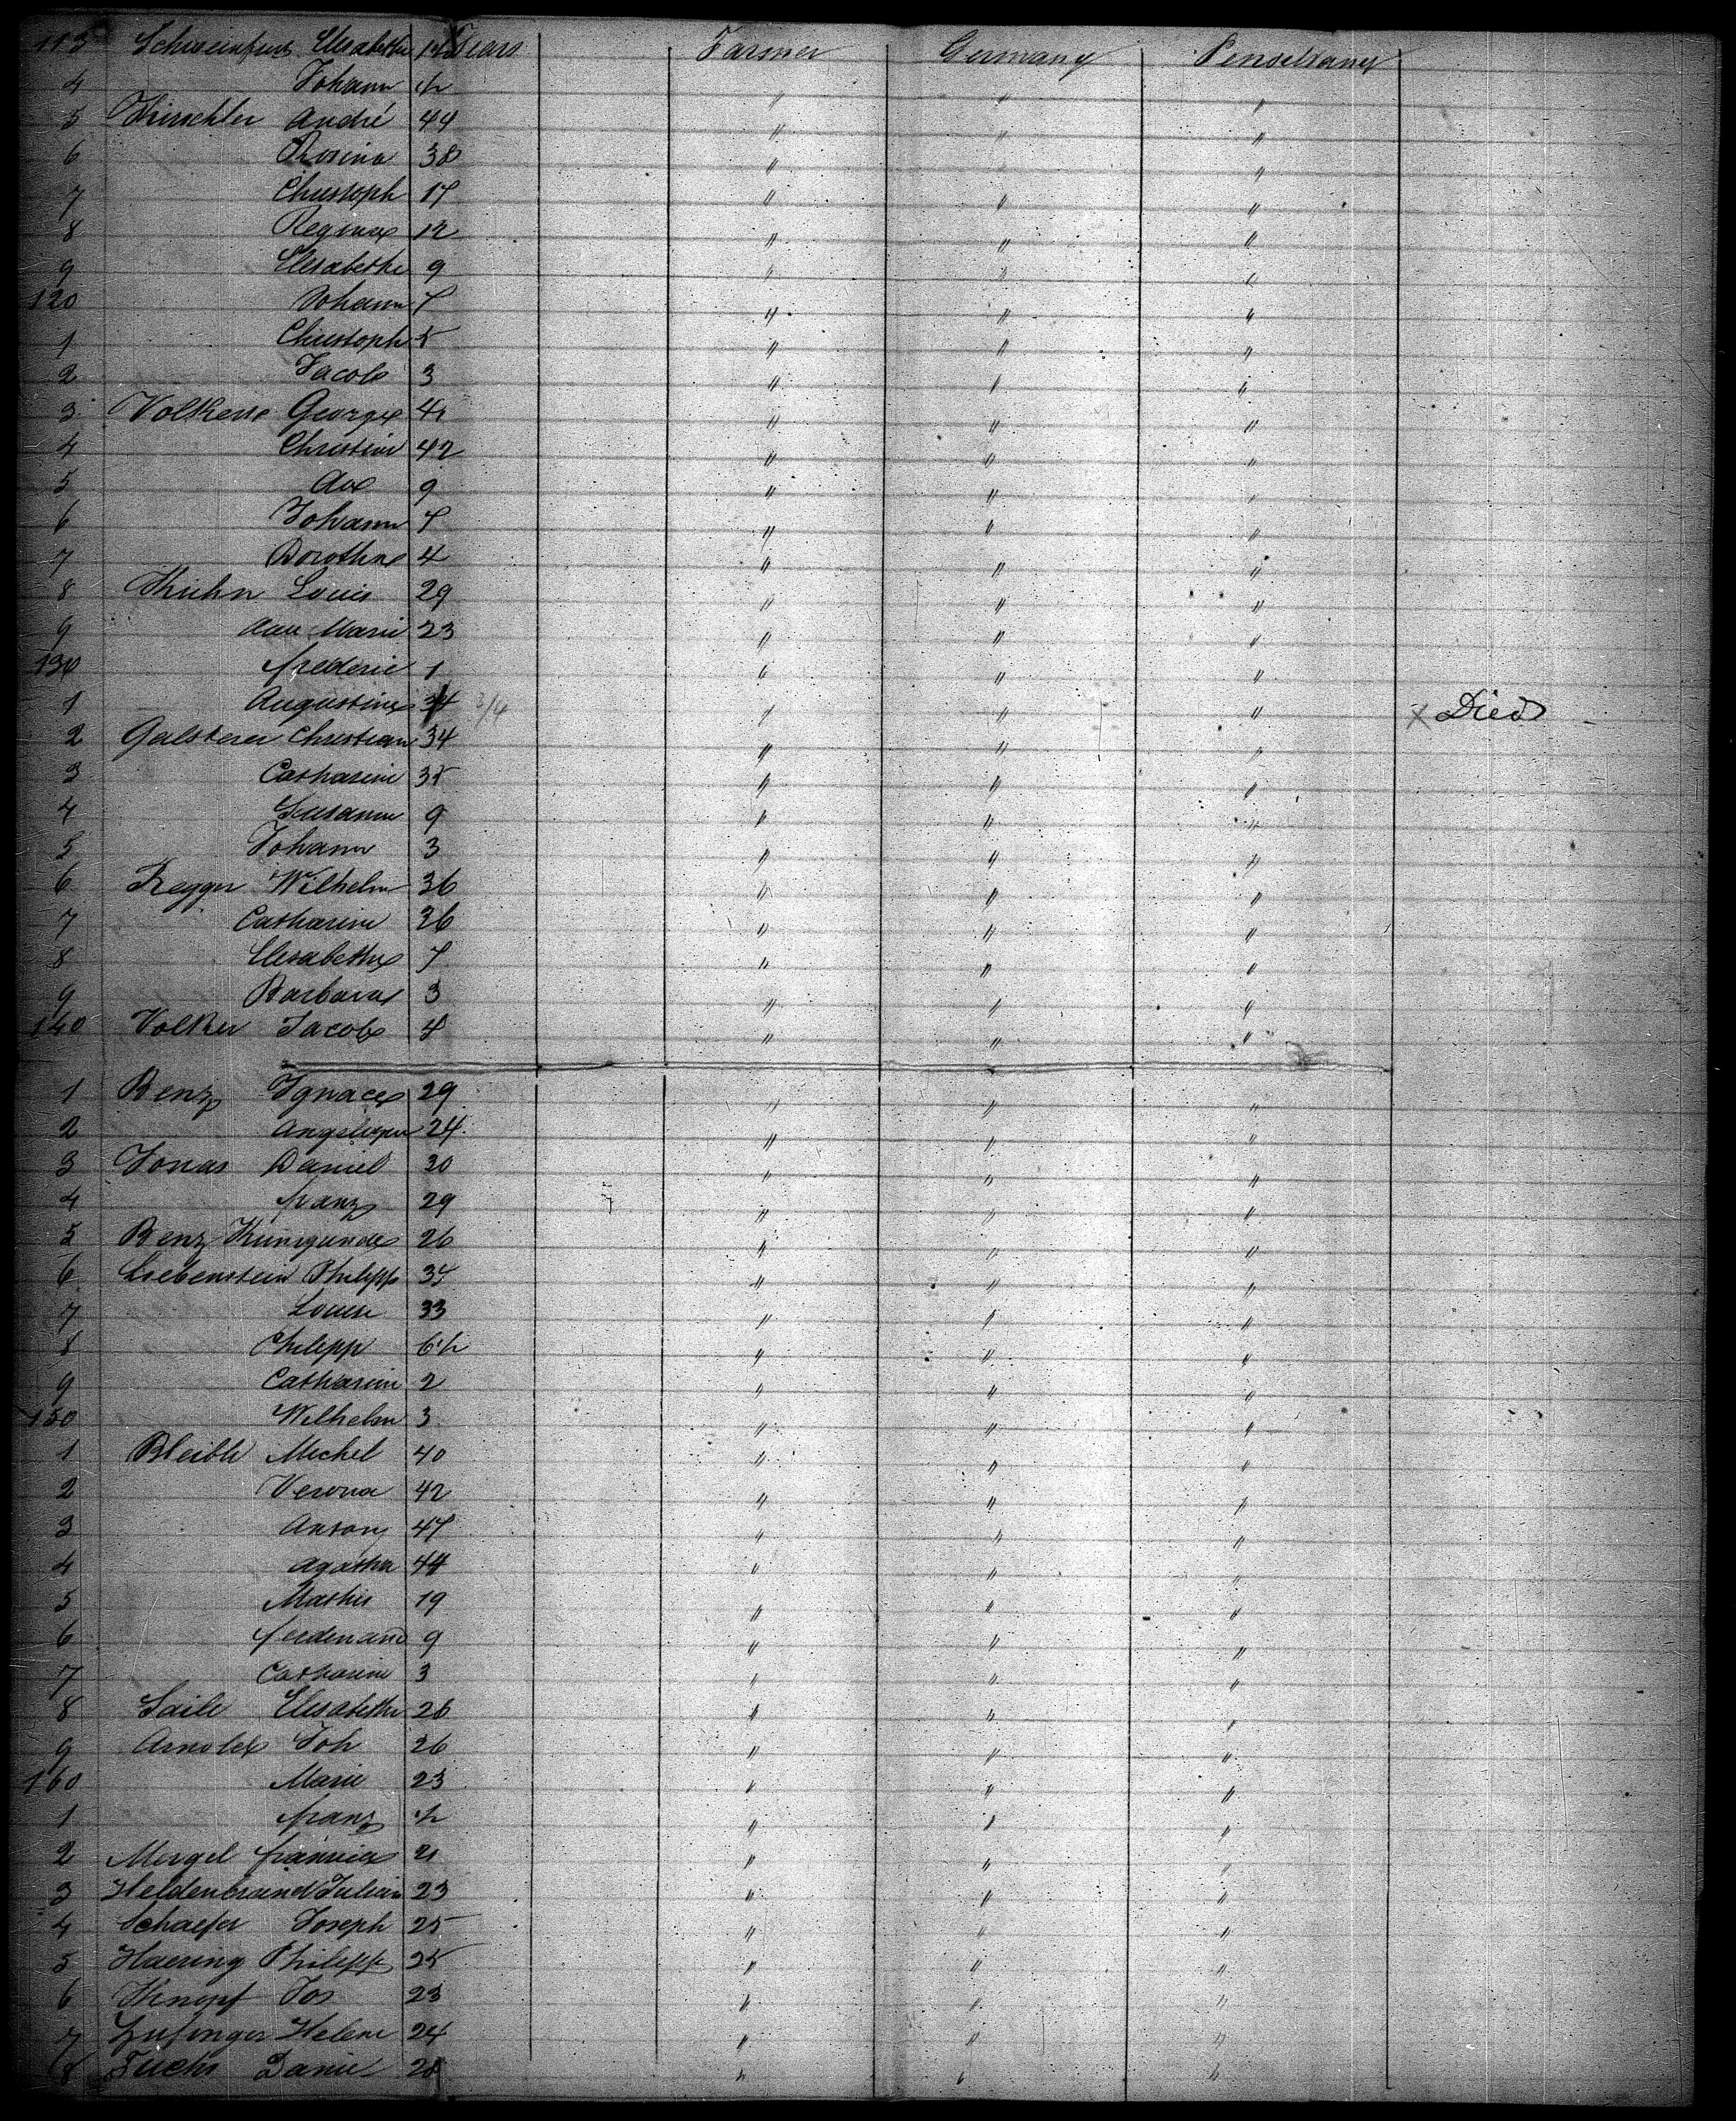 113 Schweinfurt Elisabethe 1½ Years Farmer Germany Penselvany
4 Johann ½ " " "
5 Hirschler André 44 " " "
6 Rosina 38 " "
7 Christoph 17 " " "
8 Regina 12 " " "
9 Elisabethe 9 " " "
120 Johann 7 " " "
1 Christoph 5 " " "
2 Jacob 3 " " "
3 George 41 " " "
4 Christine 42 " " "
5 9 " " "
6 Johann 7 " " "
7 Dorothea 4 " " "
8 Kuhn Louis 29 " " "
9 Marie 23 " " "
130 frederic 1 " " "
1 Augustine 3/4 " " " x Died
2 Galsterer Christian 34 " " "
3 Catharine 35 " " "
4 Susanne 9 " " "
5 Johann 3 " " "
6 Regger Wilhelm 36 " " "
7 Catharine 36 " " "
8 Elisabethe 7 " " "
9 Barbara 3 " " "
140 Volker Jacob " " "
1 Benz Ignace 29 " " "
2 Angelique 24 " " "
3 Jonas Daniel 30 " " "
4 franz 29 " " "
5 Benz Kunigunde 26 " " "
6 Liebenstein Philipp 37 " " "
7 Louise 33 " " "
8 Philipp 6½ " " "
9 Catharine 2 " " "
150 Wilhelm 3 " " "
1 Michel 40 " " "
2 Verona 42 " " "
3 Antony 47 " " "
4 Agatha 44 " " "
5 Mathis 19 " " "
6 ferdinand 9 " " "
7 Catharine 3 " " "
8 Saile Elisabethe 26 " " "
9 Arnold Joh 26 " " "
160 Marie 23 " " "
1 franz ½ " " "
2 Mergel 21 " " "
3 Heldenbrand 23 " " "
4 Schaefer Joseph 25 " " "
5 Haering Philipp 25 " " "
6 Knopf Jos 23 " " "
7 Helene 24 " " "
8 Fuchs 28 " " "